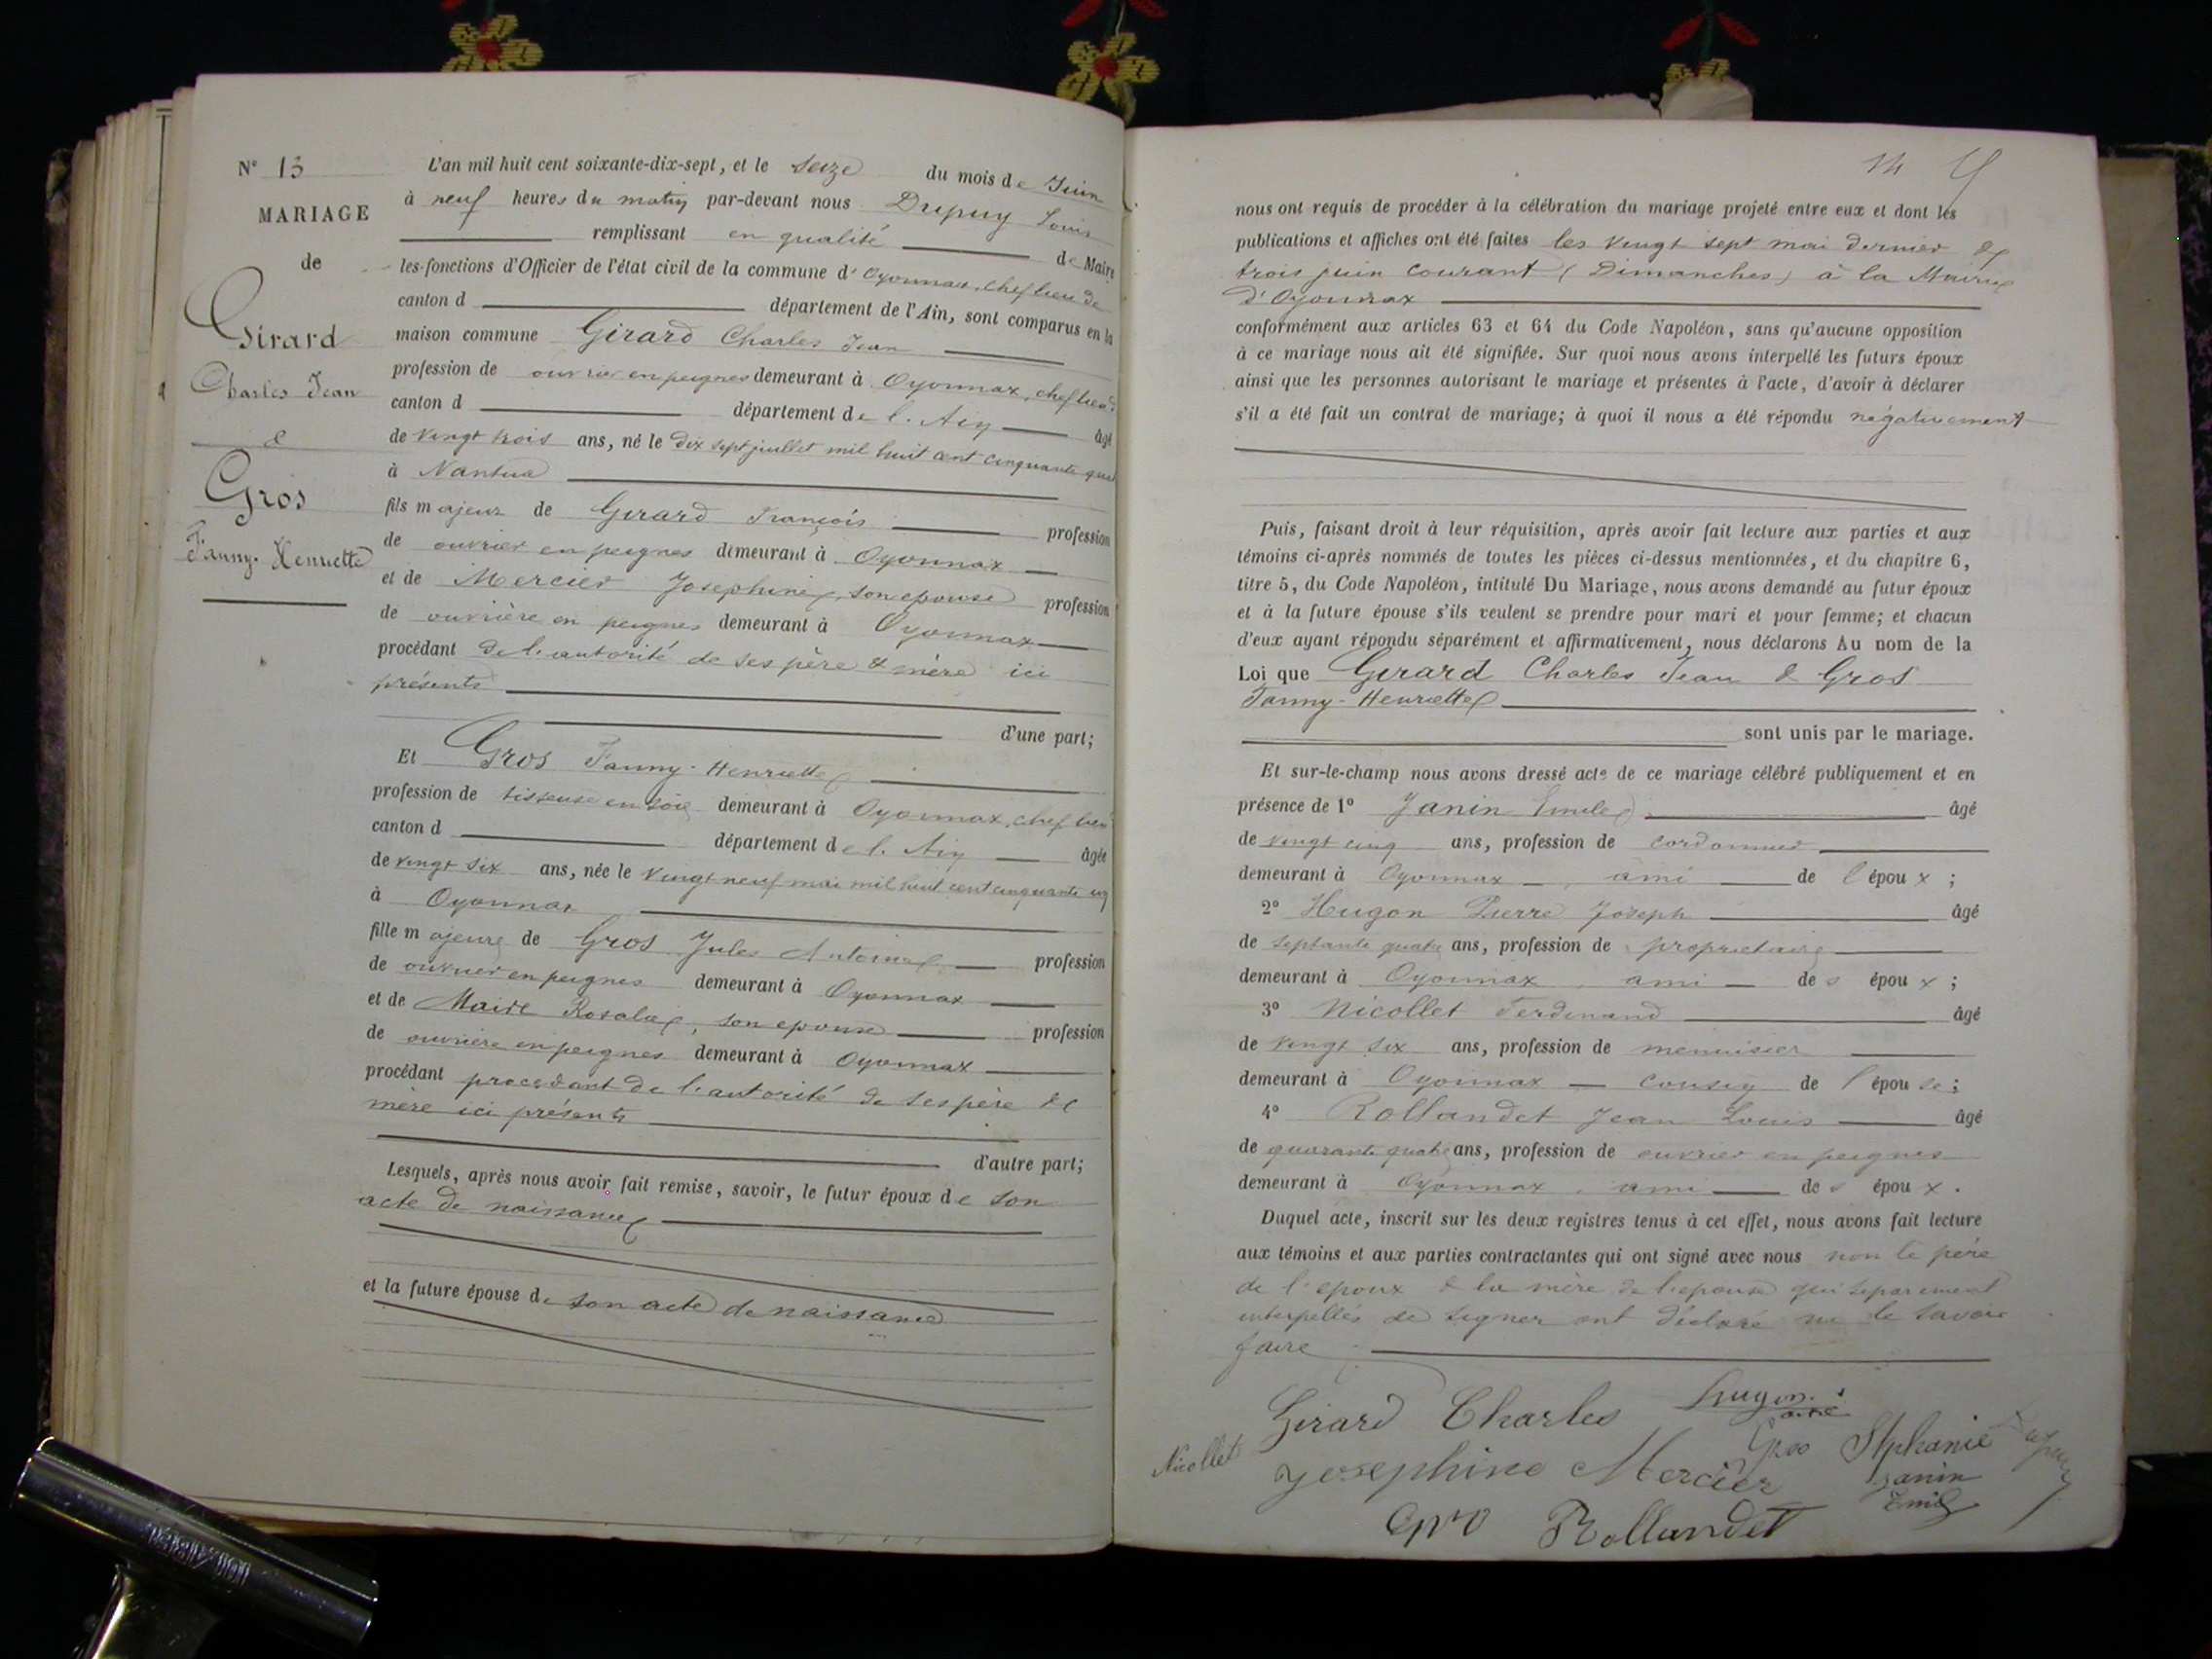 N° 13
MARIAGE
de
Girard
Charles Jean
&
Gros
Fanny-Henriette
L'an mil huit cent soixante-dix-sept, et le seize du mois de Juin
à neuf heures du matin par-devant nous Dupuy Louis
remplissant en qualité de Maire
les fonctions d'Officier de l'état civil de la commune d'Oyonnax, chef lieu de
canton d département de l'Ain, sont comparus en la
maison commune Girard Charles Jean
profession de ouvrier en peignes demeurant à Oyonnax, chef lieu
canton d département de l'Ain âgé
de vingt trois ans, né le dix sept juillet mil huit cent cinquante
à Nantua
fils majeur de Girard François profession
de ouvrier en peignes demeurant à Oyonnax
et de Mercier Josephine, son epouse profession
de ouvrière en peignes demeurant à Oyonnax
procédant de l'autorité de ses père & mère ici
présents
d'une part;
Et Gros Fanny-Henriette
profession de tisseuse en soie demeurant à Oyonnax, chef lieu
canton d département de l'Ain âgée
de vingt six ans, née le vingt neuf mai mil huit cent cinquante un
à Oyonnax
fille majeure de Gros Jules Antoine profession
de ouvrier en peignes demeurant à Oyonnax
et de Maire Rosalie, son epouse profession
de ouvrière en peignes demeurant à Oyonnax
procédant procedant de l'autorité de ses père et
mère ici présents
d'autre part;
Lesquels, après nous avoir fait remise, savoir, le futur époux de son
acte de naissance
et la future épouse de son acte de naissance
14
nous ont requis de procéder à la célébration du mariage projeté entre eux et dont les
publications et affiches ont été faites les vingt sept mai dernier &
trois juin courant (Dimanches) à la Mairie
d'Oyonnax
conformément aux articles 63 et 64 du Code Napoléon, sans qu'aucune opposition
à ce mariage nous ait été signifiée. Sur quoi nous avons interpellé les futurs époux
ainsi que les personnes autorisant le mariage et présentes à l'acte, d'avoir à déclarer
s'il a été fait un contrat de mariage; à quoi il nous a été répondu négativement
Puis, faisant droit à leur réquisition, après avoir fait lecture aux parties et aux
témoins ci-après nommés de toutes les pièces ci-dessus mentionnées, et du chapitre 6,
titre 5, du Code Napoléon, intitulé Du Mariage, nous avons demandé au futur époux
et à la future épouse s'ils veulent se prendre pour mari et pour femme; et chacun
d'eux ayant répondu séparément et affirmativement, nous déclarons Au nom de la
Loi que Girard Charles Jean & Gros
Fanny-Henriette
sont unis par le mariage.
Et sur-le-champ nous avons dressé acte de ce mariage célébré publiquement et en
présence de 1° Janin Emile âgé
de vingt cinq ans, profession de cordonnier
demeurant à Oyonnax, ami de l'époux;
2° Hugon Pierre Joseph âgé
de septante quatre ans, profession de propriétaire
demeurant à Oyonnax, ami des époux;
3° Nicollet Ferdinand âgé
de vingt six ans, profession de menuisier
demeurant à Oyonnax cousin de l'épouse;
4° Rollandet Jean Louis âgé
de quarante quatre ans, profession de ouvrier en peignes
demeurant à Oyonnax, ami des époux.
Duquel acte, inscrit sur les deux registres tenus à cet effet, nous avons fait lecture
aux témoins et aux parties contractantes qui ont signé avec nous non le père
de l'epoux & la mère de l'epouse qui séparement
interpellés de signer ont déclaré ne le savoir
faire
Girard Charles Hugon ainé
Nicollet Josephine Mercier Gros Stphanie Dupuy
Janin
Emile
Gro Rollandet